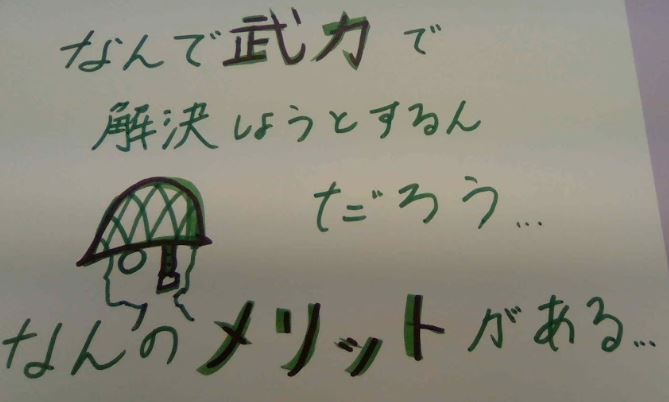 なんで武力で
解決しようとするん
だろう...
なんのメリットがある...